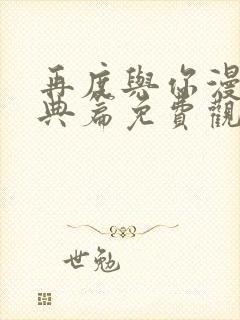 再度與你漫
典篇免費觀
世勉